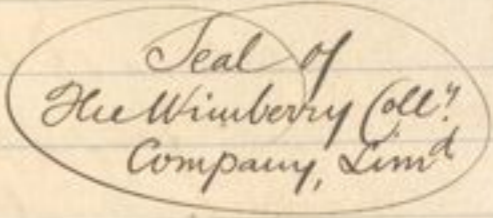 Seal of
The Wimberry Colly.
Company, Limd